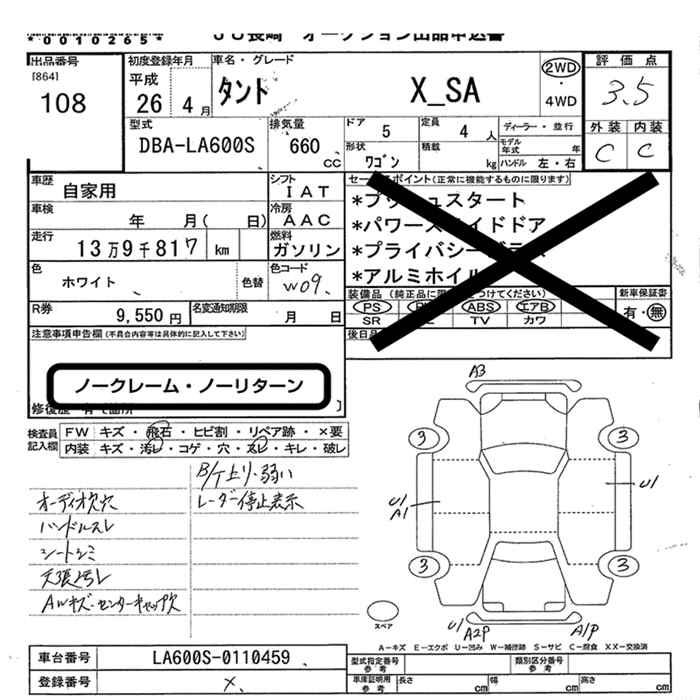 *0010265*
JU長崎 オークション出品申込書
出品番号
[864]
108
初度登録年月
平成
26 4 月
車名・グレード
タント X_SA
2WD
・
4WD
評価点
3.5
外装 内装
C C
型式
DBA-LA600S
排気量
660
CC
ドア 5
定員 4 人
ディーラー・並行
モデル年式 年
形状 ワゴン
積載 kg
ハンドル 左・右
車歴 自家用
シフト IAT
車検 年 月( 日)
冷房 AAC
走行 13万9千817 km
燃料 ガソリン
色 ホワイト
色替
色コード W09
R券 9,550円
名変通知期限 月 日
セールスポイント(正常に機能するものに限ります)
*プッシュスタート
*パワースライドドア
*プライバシーガラス
*アルミホイル
装備品(純正品に つけてください)
PS ABS エアB
SR TV カワ
新車保証書
有・無
後日品
注意事項申告欄(不具合内容等は具体的に記入して下さい)
ノークレーム・ノーリターン
修復歴 有 箇所
検査員記入欄
FW キズ・飛石・ヒビ割・リペア跡・×要
内装 キズ・汚レ・コゲ・穴・スレ・キレ・破レ
B/T上り・弱い
オーディオ欠穴 レーダー停止表示
ハンドルスレ
シートシミ
天張汚レ
AWキズ・センターキャップ欠
A3
3 3
U1
A1
U1
3 3
U1 A2P A1P
スペア
A－キズ E－エクボ U－凹み W－補修跡 S－サビ C－腐食 XX－交換済
車台番号 LA600S-0110459
登録番号 ×
型式指定番号 参考
類別区分番号 参考
車庫証明用 参考
長さ cm 幅 cm 高さ cm